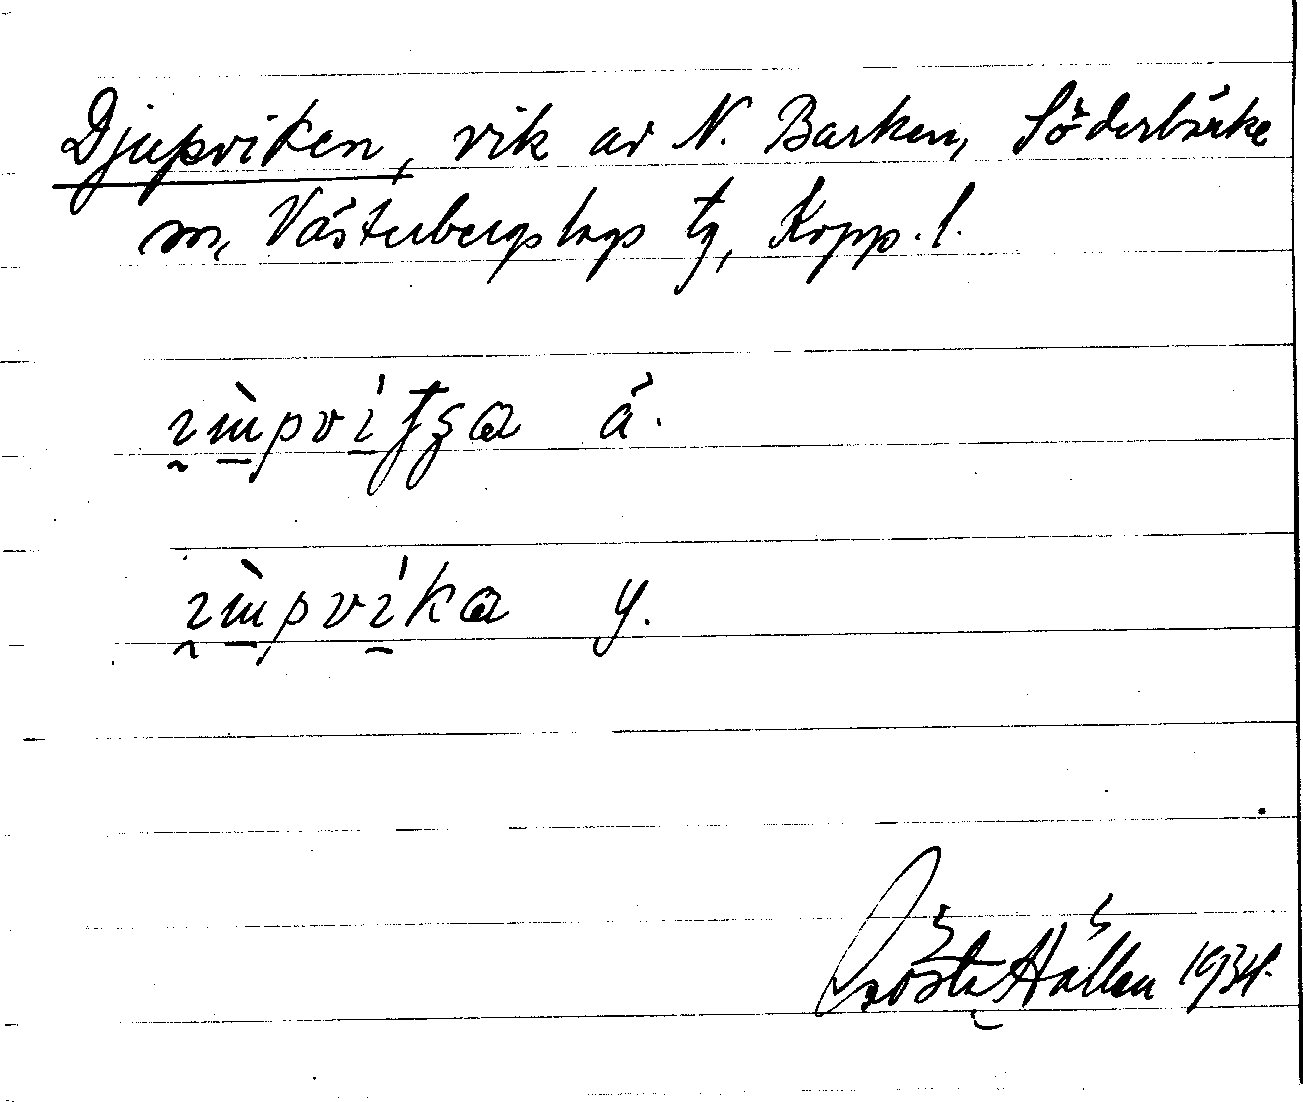 Djupviken, vik av N. Barken, Söderbärke
sn, Västerbergslags tg, Kopp. l.
å.
y.
Gösta Hållen 1934.